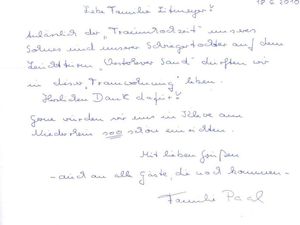 18.6.2010
Liebe Familie
Anlässlich der „Traumhochzeit" unseres
Sohnes und unserer Schwiegertochter auf dem
Leuchtturm „Westerhever Sand" durften wir
in dieser „Traumwohnung" leben.
Herzlichen Dank dafür!
Gerne würden wir uns in Kleve am
Niederrhein soo schön einrichten.
Mit lieben Grüßen
- auch an alle Gäste, die noch kommen -
Familie